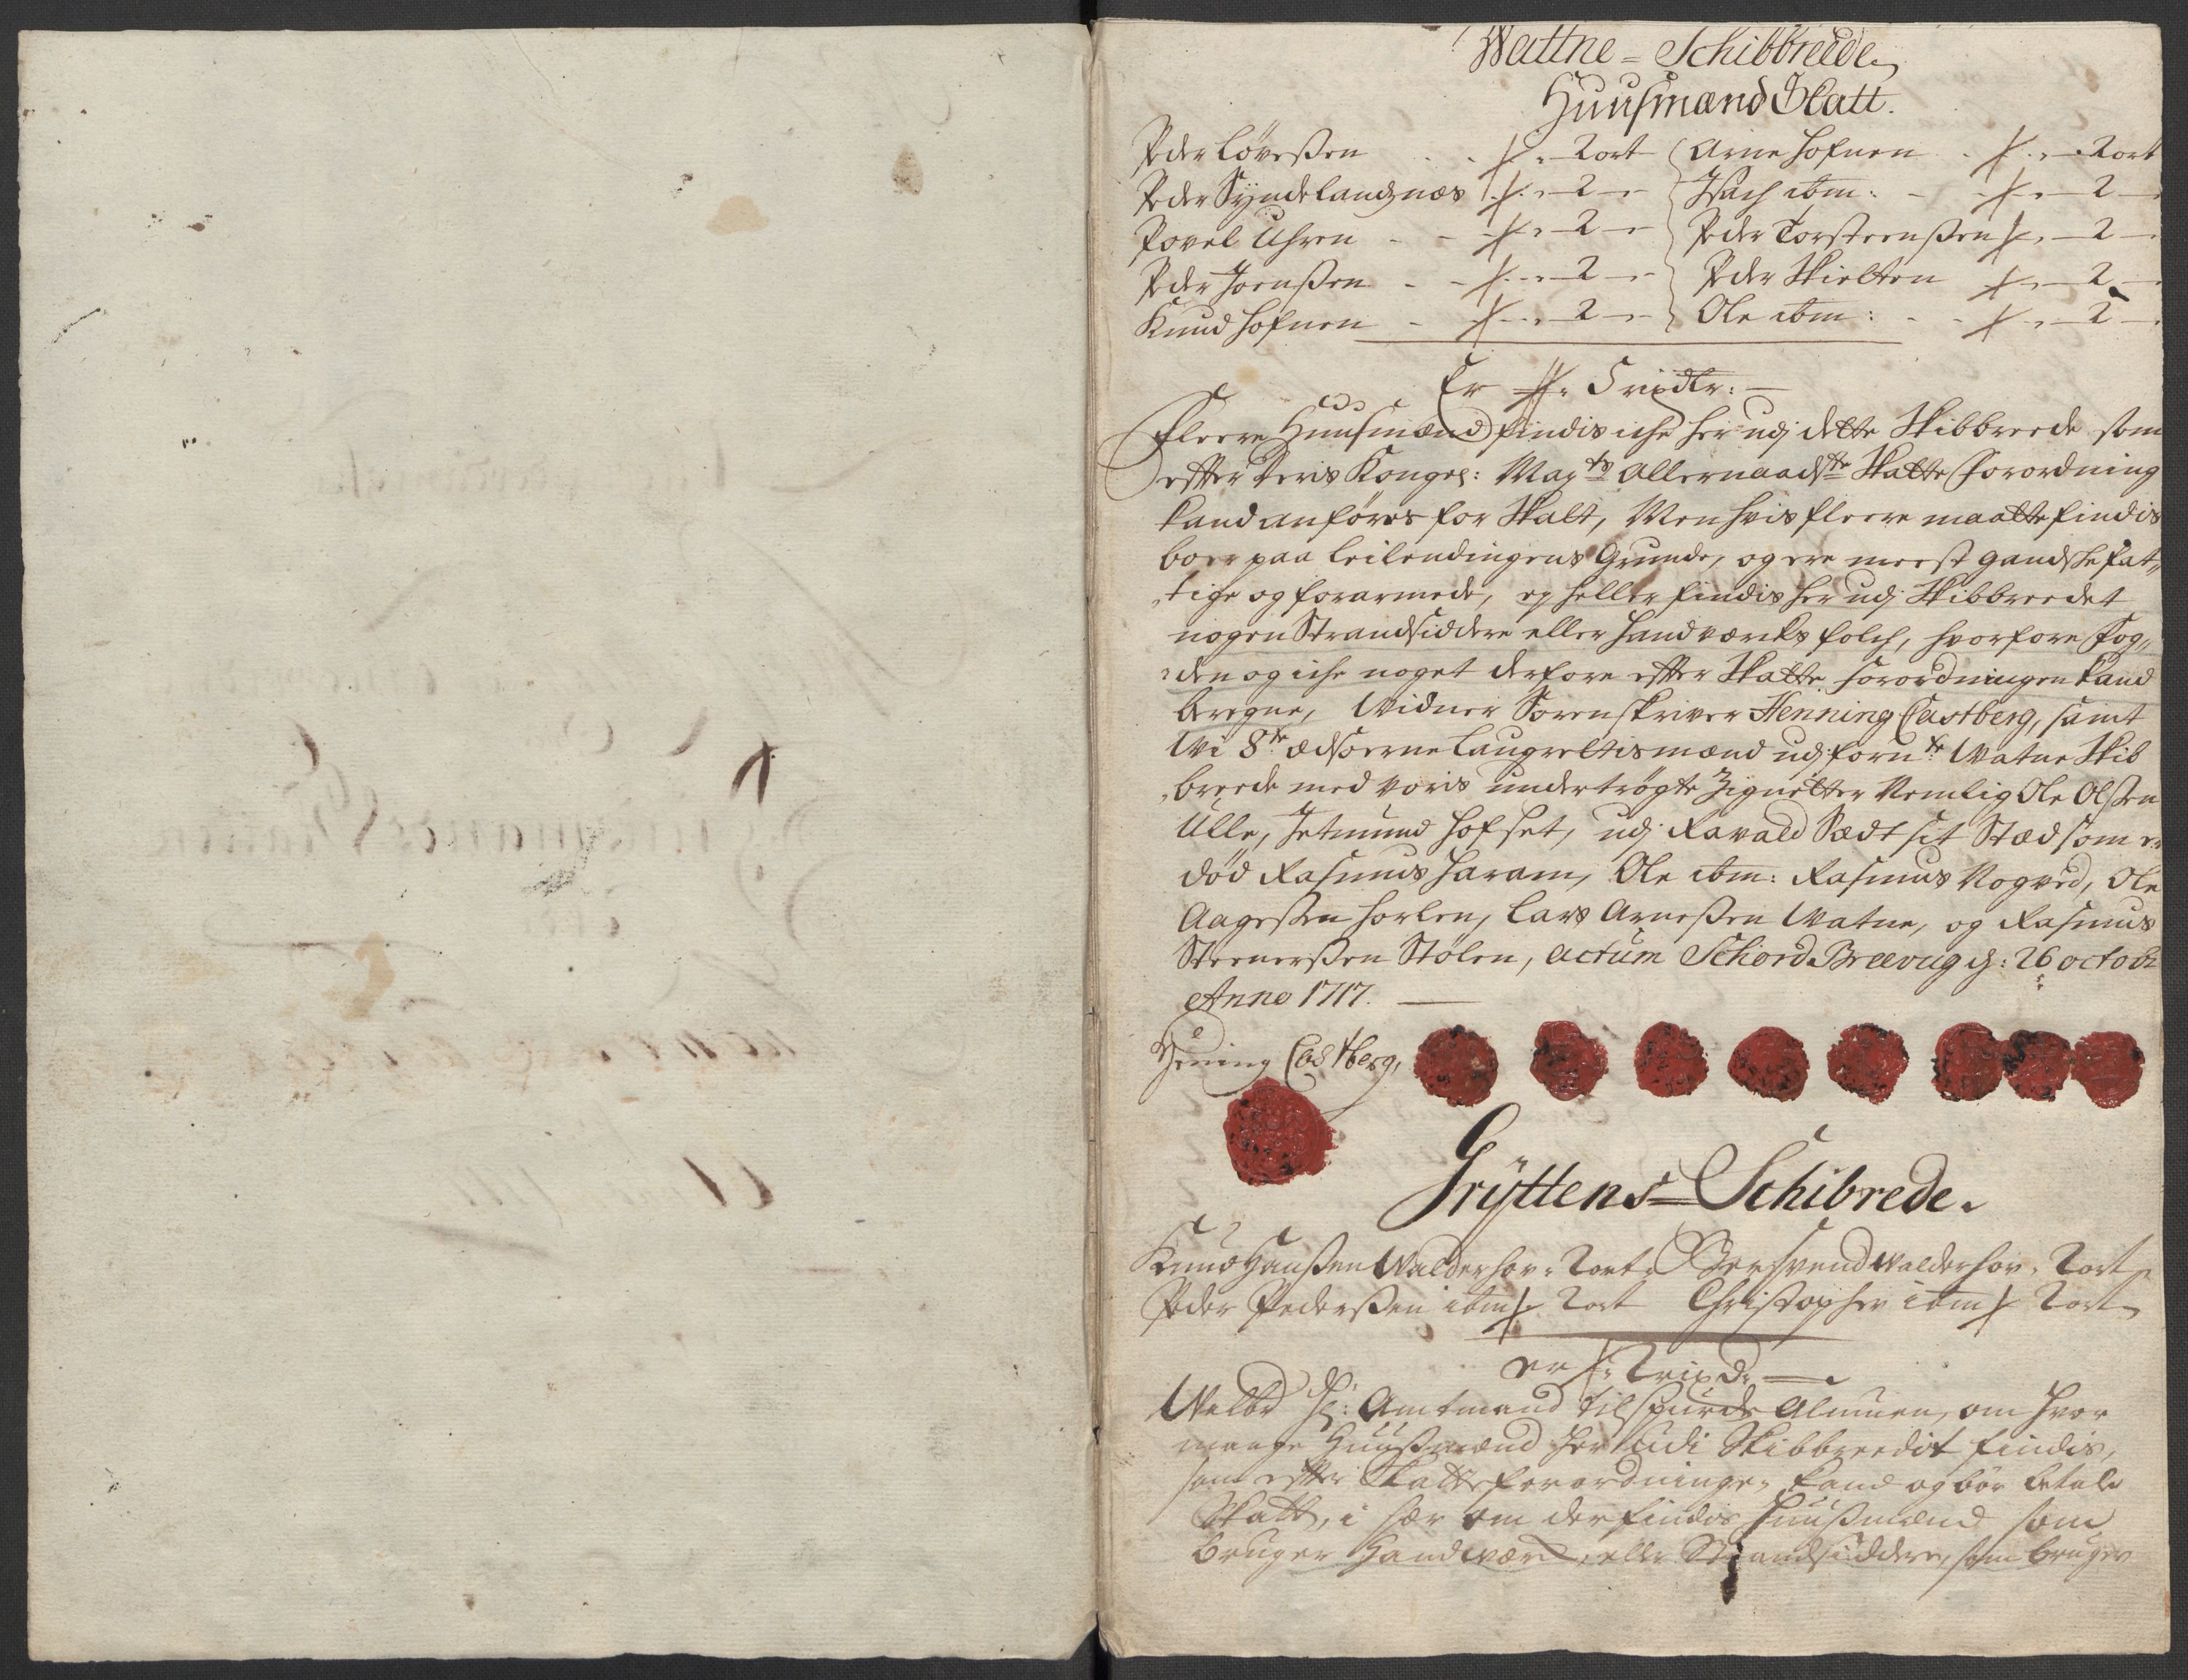 Wattne = Schibbreede
Huusmænd Skatt.
Peder Løvessen - 2 ort Arne Hofnen - 2 ort
Peder Syndelandznæs - 2 - Isach ibm: - 2 -
Povel Uhren - 2 - Peder Torsteenssen - 2 -
Peder Joenssen - 2 - Peder Skielten - 2 -
Knud Hofnen - 2 - Ole ibm: - 2 -
Er 5 rixdlr: -
Fleere Huusmænd findis iche her udj dette Skibbreede som
efter deris Kongel: Mayts allernaadste Skatte Forordning
kand anføres for Skatt, Men hvis fleere maatte findis
boer paa Leilendingens Grunde, og ere meest gandske fat„
„tige og forarmede, ey heller findis her udj Skibbreedet
nogen Strandsiddere eller Handværks folch, hvorfore Fog„
„den og iche noget derfore efter Skatte forordningen kand
beregne, Vidner Sorenskriver Henning Castberg, samt
Wi 8te Edsoerne Laugrettismænd udj fornte Watne Skib
„breede med voris undertrögte Zignetter Nemlig Ole Olssen
Ulle, Jetmund Hofset, udj Ravald Sædt sit Stæd som er
död Rasmus Haram, Ole ibm: Rasmus Nogved, Ole
Aagessen Horlen, Lars Arnessen Watne, og Rasmus
Steenerssen Stølen, actum Schord Breevug d: 26 octobr
Anno 1717. -
Hening Castberg,
Gryttens = Schibrede.
Knud Hanssen Walderhov - 2 ort Sivend Walderhov - 2 ort
Peder Pederssen ibm - 2 ort Christopher ibm - 2 ort
er - 2 rixd. -
Welbr Hr: Amtmand tilspurde Almuen, om hvor
mange Huussmænd her udi Skibbreedit findis,
som efter Skatteforordningen kand og bör betale
Skatt, i sær om der findis Huussmænd som
bruger Handværk, eller Strandsiddere, som bruger